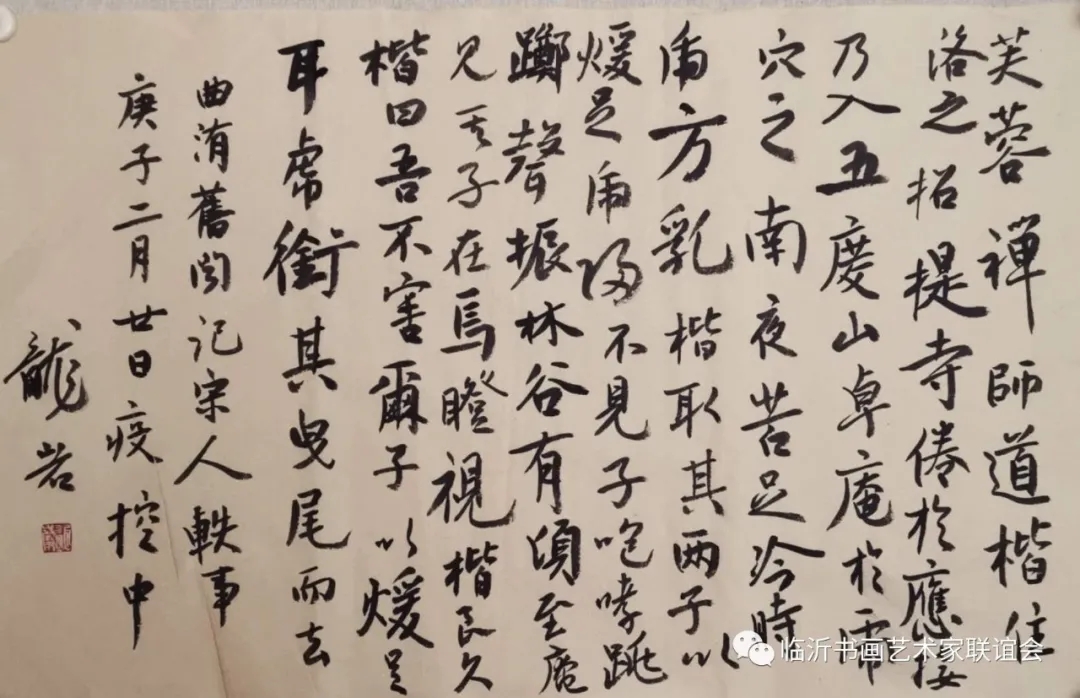 芙蓉禅師道楷住
洛之招提寺倦於應接
乃入五度山卓庵於虎
穴之南夜苦足冷時
虎方乳楷取其两子以
煖足虎归不見子咆哮跳
躑聲振林谷有頃至庵
见其子在焉瞪視楷良久
楷曰吾不害爾子以煖足
耳虎銜其曳尾而去
曲洧舊闻记宋人軼事
庚子二月廿日疫控中
龍岩
临沂书画艺术家联谊会